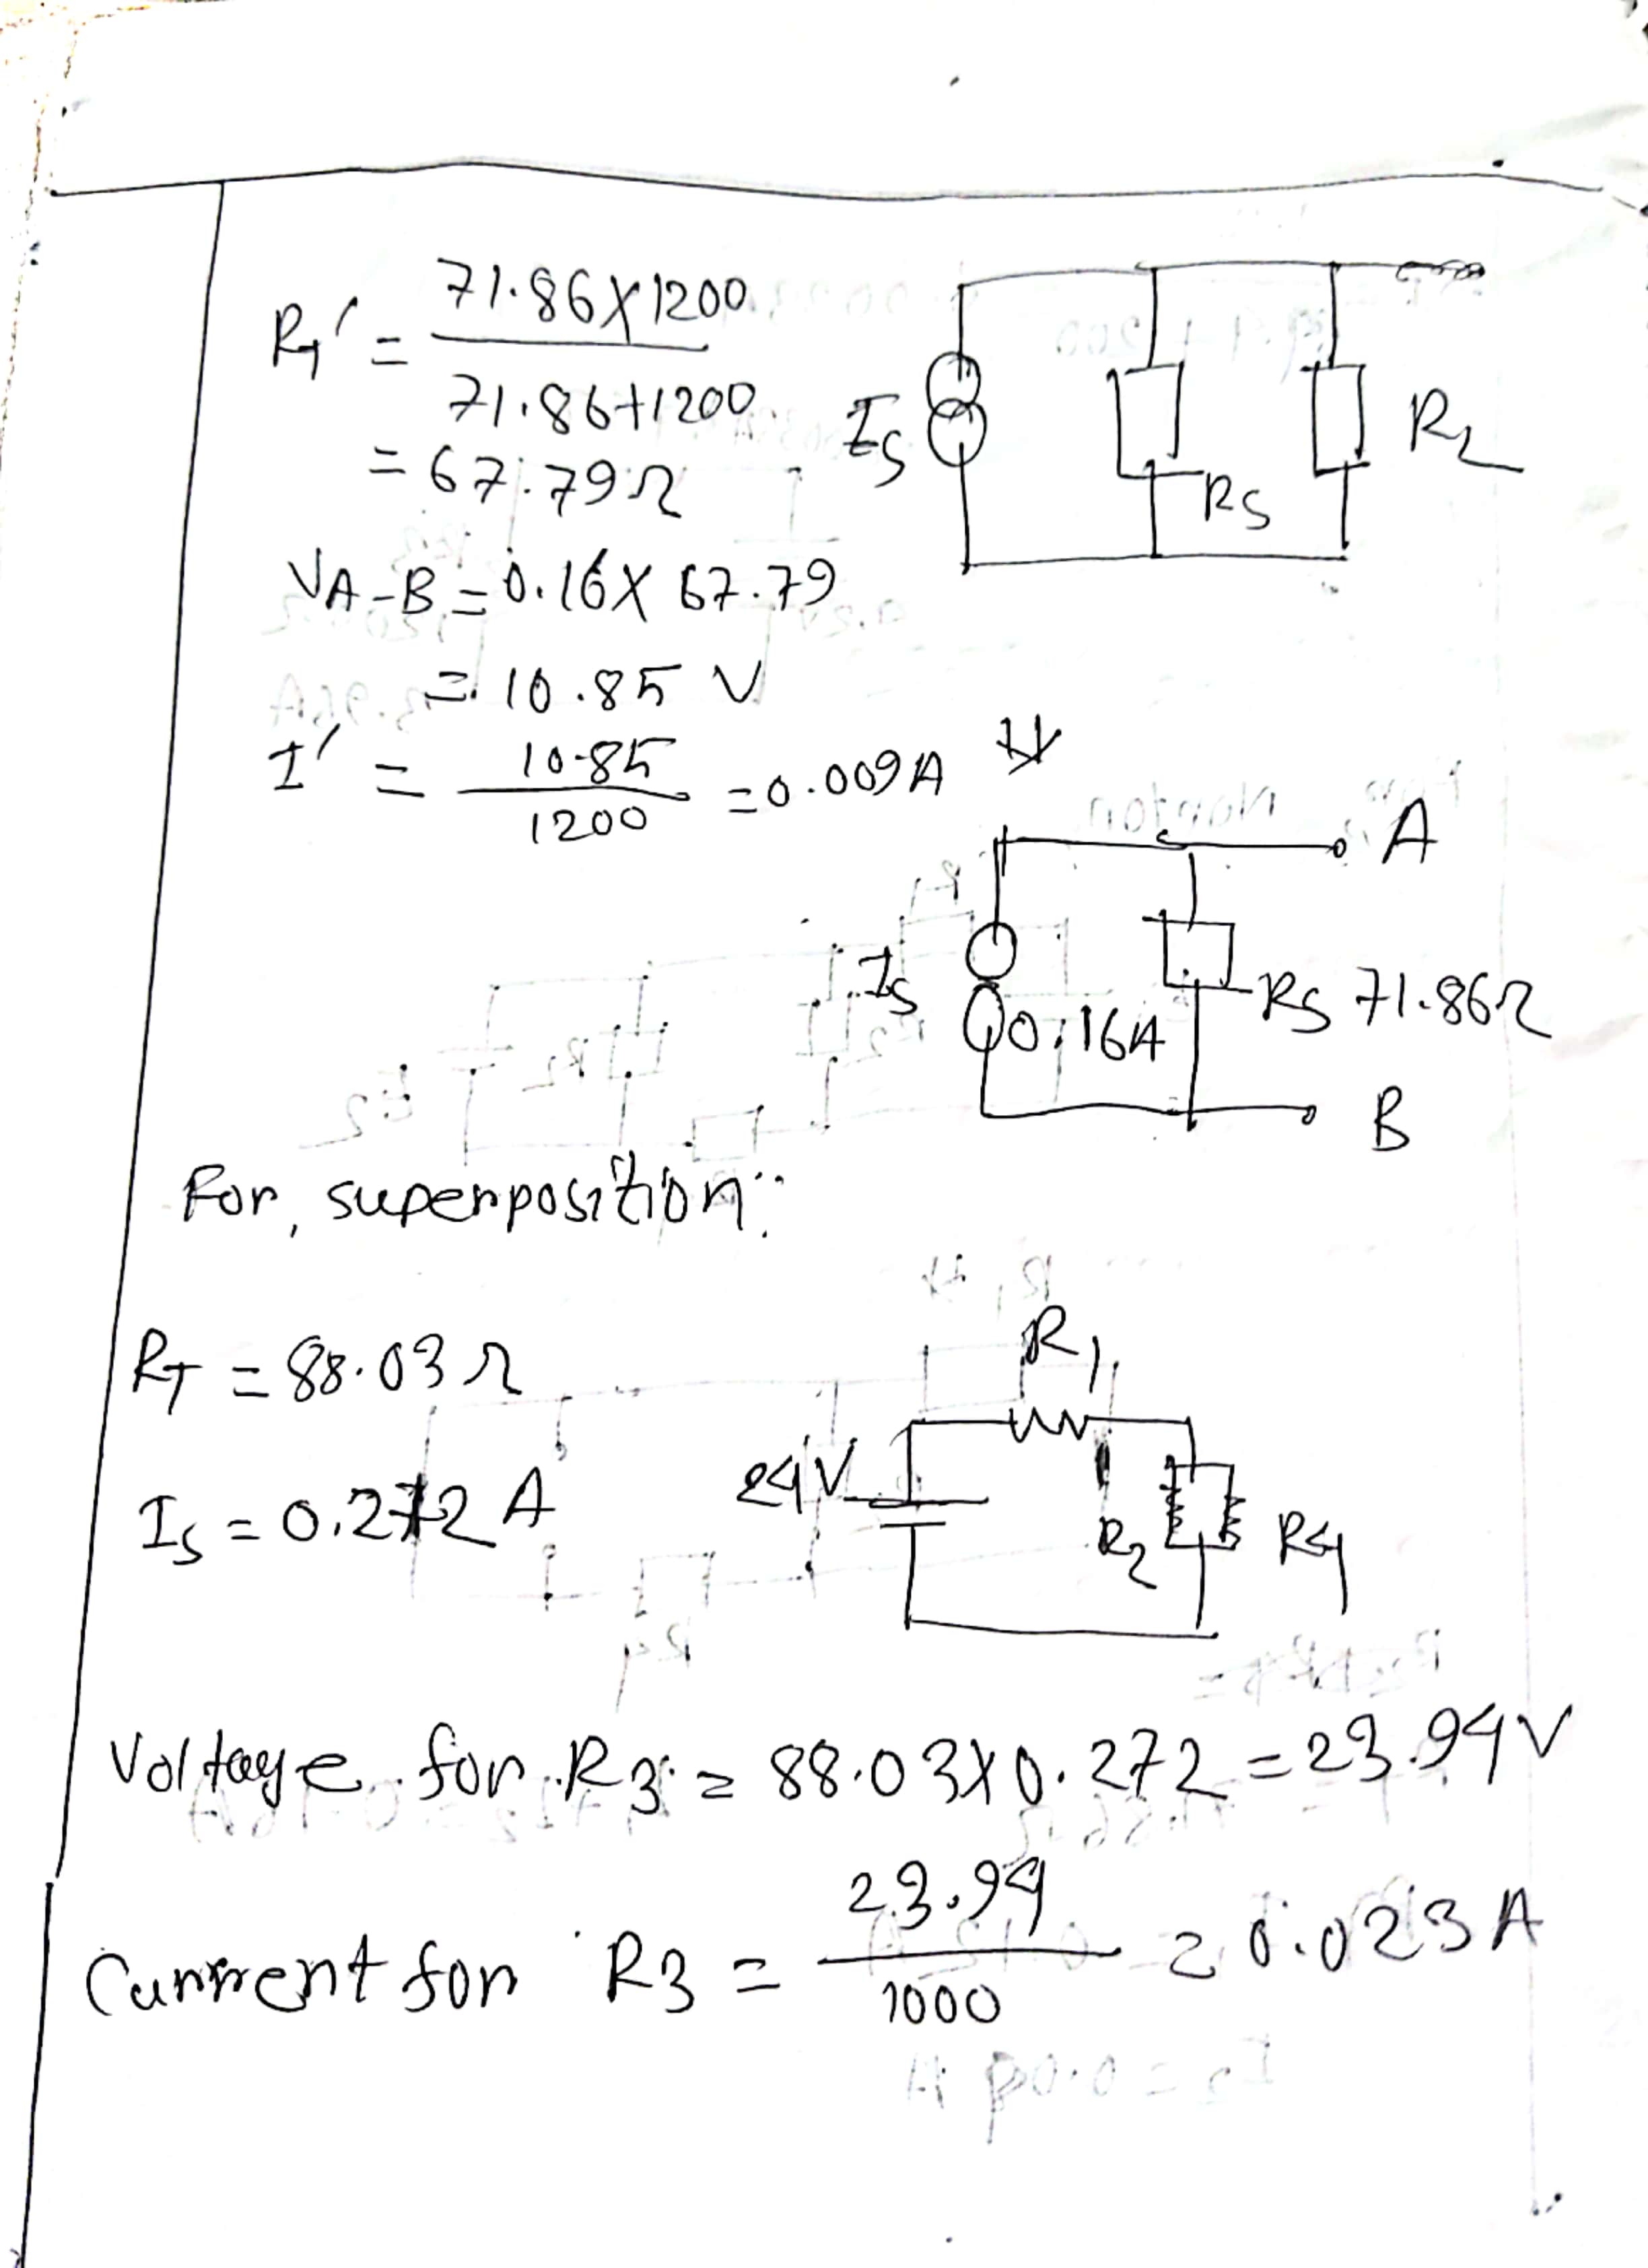 R₁' = 71.86 X 1200 / 71.86+1200
= 67.79Ω
VA-B = 0.16 X 67.79
= 10.85 V
I' = 10.85 / 1200 = 0.009A
Is
Rs
RL
A
Is
0.16A
Rs 71.86Ω
B
For, superposition:
RT = 88.03 Ω
Is = 0.272 A
R1
24V
R2
R4
Voltage for R3 = 88.03X0.272 = 23.94V
Current for R3 = 23.94 / 1000 = 0.023A